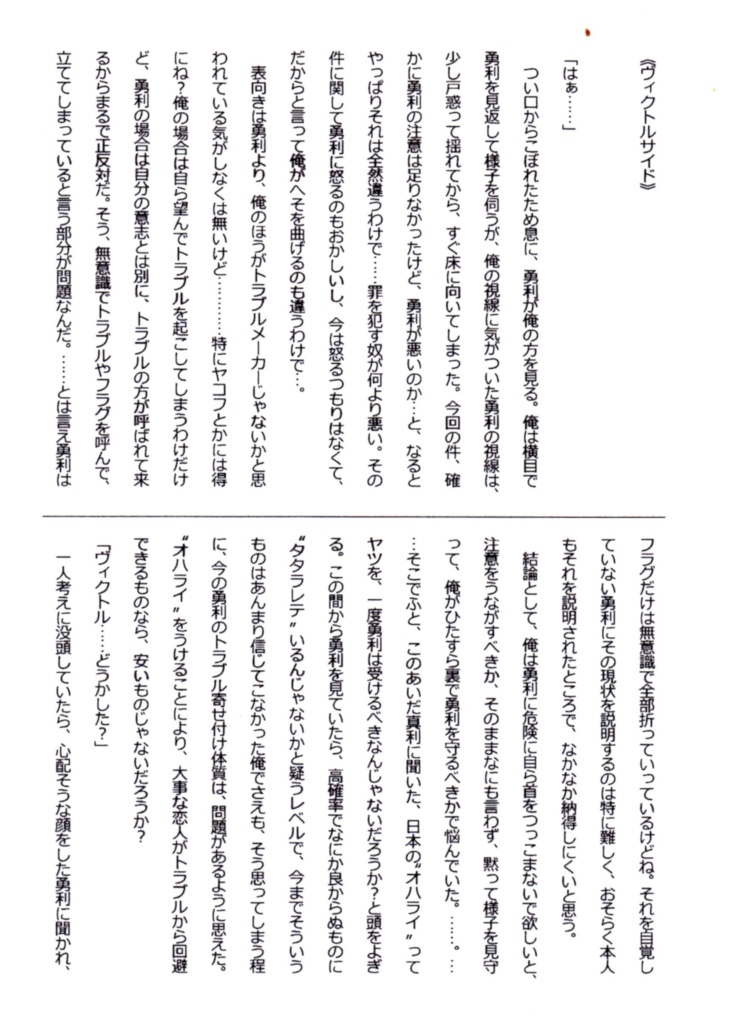 《ヴィクトルサイド》
「はぁ……」
つい口からこぼれたため息に、勇利が俺の方を見る。俺は横目で
勇利を見返して様子を伺うが、俺の視線に気がついた勇利の視線は、
少し戸惑って揺れてから、すぐ床に向いてしまった。今回の件、確
かに勇利の注意は足りなかったけど、勇利が悪いのか…と、なると
やっぱりそれは全然違うわけで……罪を犯す奴が何より悪い。その
件に関して勇利に怒るのもおかしいし、今は怒るつもりはなくて、
だからと言って俺がへそを曲げるのも違うわけで…。
表向きは勇利より、俺のほうがトラブルメーカーじゃないかと思
われている気がしなくは無いけど…………特にヤコフとかには得
にね？俺の場合は自ら望んでトラブルを起こしてしまうわけだけ
ど、勇利の場合は自分の意志とは別に、トラブルの方が呼ばれて来
るからまるで正反対だ。そう、無意識でトラブルやフラグを呼んで、
立ててしまっていると言う部分が問題なんだ。……とは言え勇利は
フラグだけは無意識で全部折っていっているけどね。それを自覚し
ていない勇利にその現状を説明するのは特に難しく、おそらく本人
もそれを説明されたところで、なかなか納得しにくいと思う。
結論として、俺は勇利に危険に自ら首をつっこまないで欲しいと、
注意をうながすべきか、そのままなにも言わず、黙って様子を見守
って、俺がひたすら裏で勇利を守るべきかで悩んでいた。……。…
…そこでふと、このあいだ真利に聞いた、日本の〝オハライ〟って
ヤツを、一度勇利は受けるべきなんじゃないだろうか？と頭をよぎ
る。この間から勇利を見ていたら、高確率でなにか良からぬものに
〝タタラレテ〟いるんじゃないかと疑うレベルで、今までそういう
ものはあんまり信じてこなかった俺でさえも、そう思ってしまう程
に、今の勇利のトラブル寄せ付け体質は、問題があるように思えた。
〝オハライ〟をうけることにより、大事な恋人がトラブルから回避
できるものなら、安いものじゃないだろうか？
「ヴィクトル……どうかした？」
一人考えに没頭していたら、心配そうな顔をした勇利に聞かれ、